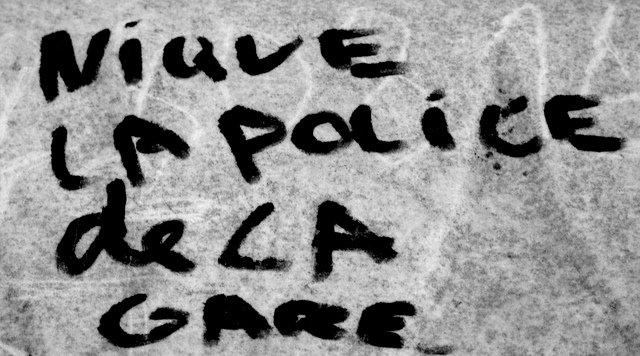 NiQUE
LA POLiCE
de LA
GARE